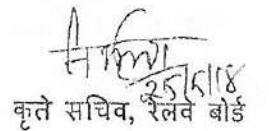 25/5/18
कृते सचिव, रेलवे बोर्ड